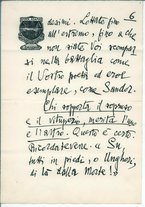 6
desimi. Lottate fino
all'estremo, fino a che
non siate voi scompar
si nella battaglia come
il Vostro poeta ed eroe
esemplare, come Sandor.
Chi sopporta il sopruso
e il vituperio, merita l'uno
e l'altro. Questo è certo.
Ricordatevene. E Su,
tutti in piedi, o Ungheri,
di là dalla Morte!